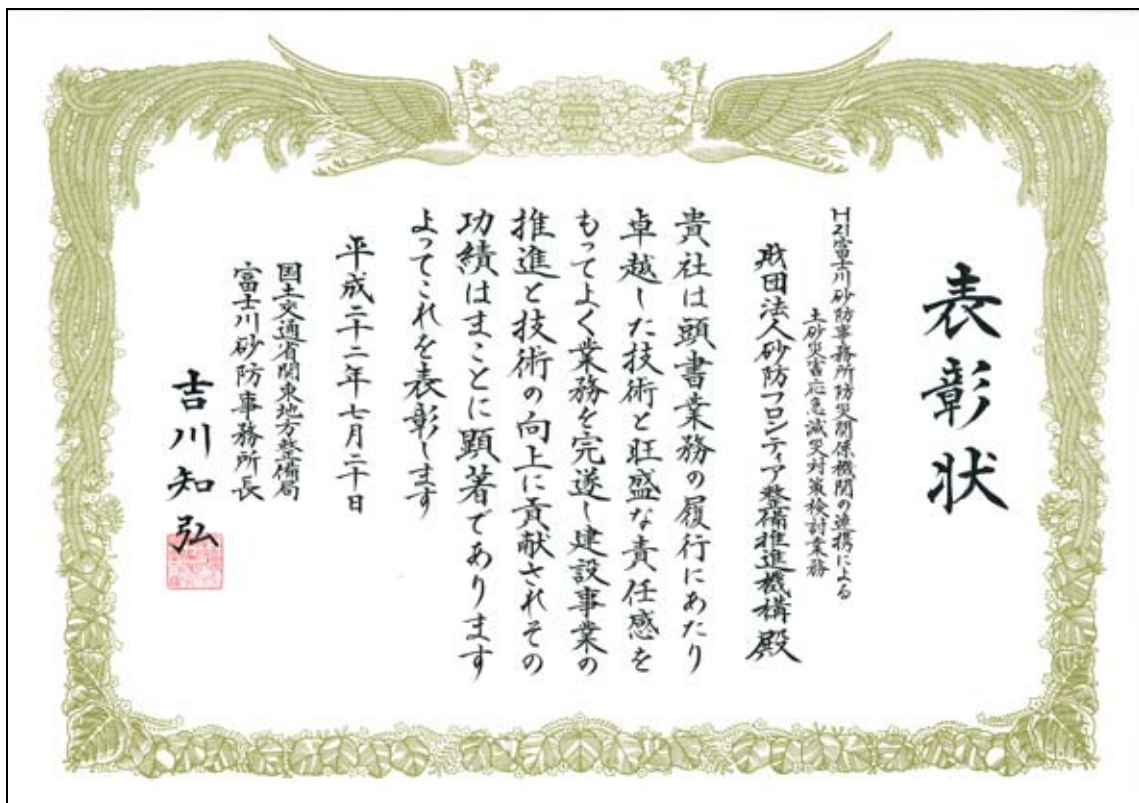 表彰状
H21富士川砂防事務所防災関係機関の連携による
土砂災害応急減災対策検討業務
財団法人砂防フロンティア整備推進機構殿
貴社は頭書業務の履行にあたり
卓越した技術と旺盛な責任感を
もってよく業務を完遂し建設事業の
推進と技術の向上に貢献されその
功績はまことに顕著であります
よってこれを表彰します
平成二十二年七月二十日
国土交通省関東地方整備局
富士川砂防事務所長
吉川知弘